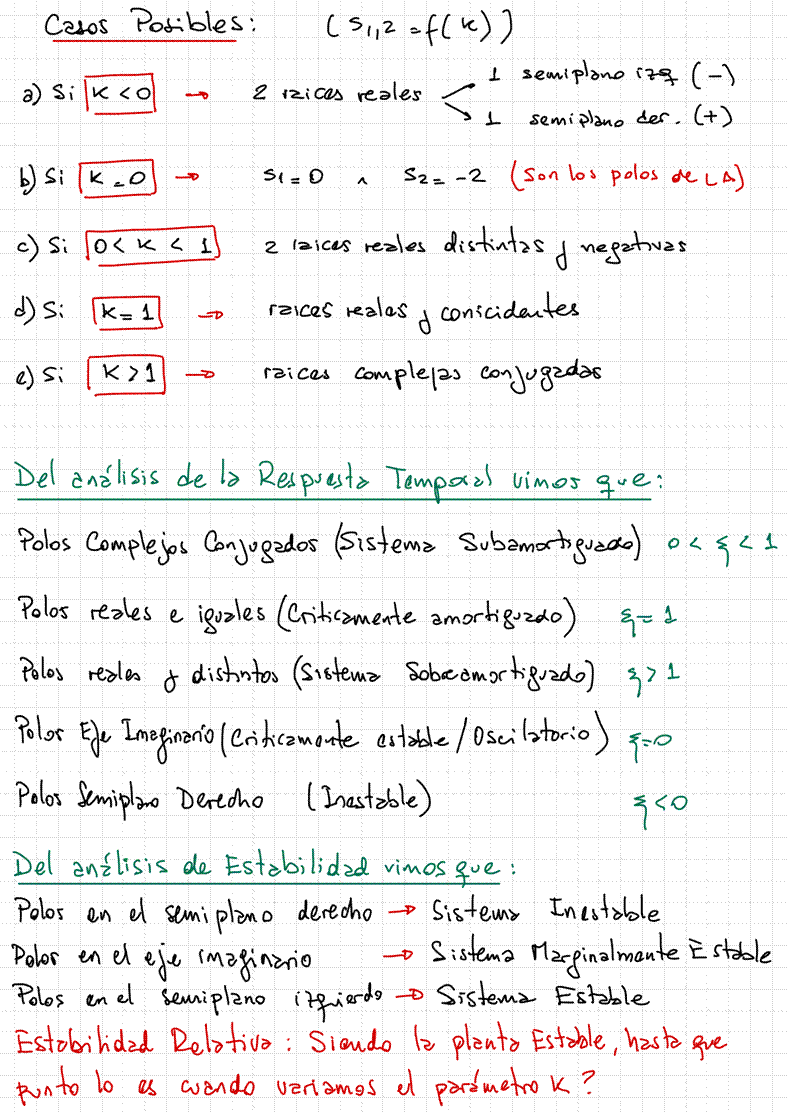 Casos Posibles: (s1,2 = f(k))
a) Si K < 0 → 2 raices reales 1 semiplano izq (-)
1 semiplano der. (+)
b) Si K = 0 → s1 = 0 ∧ s2 = -2 (Son los polos de LA)
c) Si 0 < K < 1 2 raices reales distintas y negativas
d) Si K = 1 → raices reales y conicidentes
e) Si K > 1 → raices complejas conjugadas
Del análisis de la Respuesta Temporal vimos que:
Polos Complejos Conjugados (Sistema Subamortiguado) 0 < ξ < 1
Polos reales e iguales (Criticamente amortiguado) ξ = 1
Polos reales y distintos (Sistema Sobreamortiguado) ξ > 1
Polos Eje Imaginario (Criticamente estable / Oscilatorio) ξ = 0
Polos Semiplano Derecho (Inestable) ξ < 0
Del análisis de Estabilidad vimos que:
Polos en el semiplano derecho → Sistema Inestable
Polos en el eje imaginario → Sistema Marginalmente Estable
Polos en el semiplano izquierdo → Sistema Estable
Estabilidad Relativa: Siendo la planta Estable, hasta que
punto lo es cuando variamos el parámetro K?